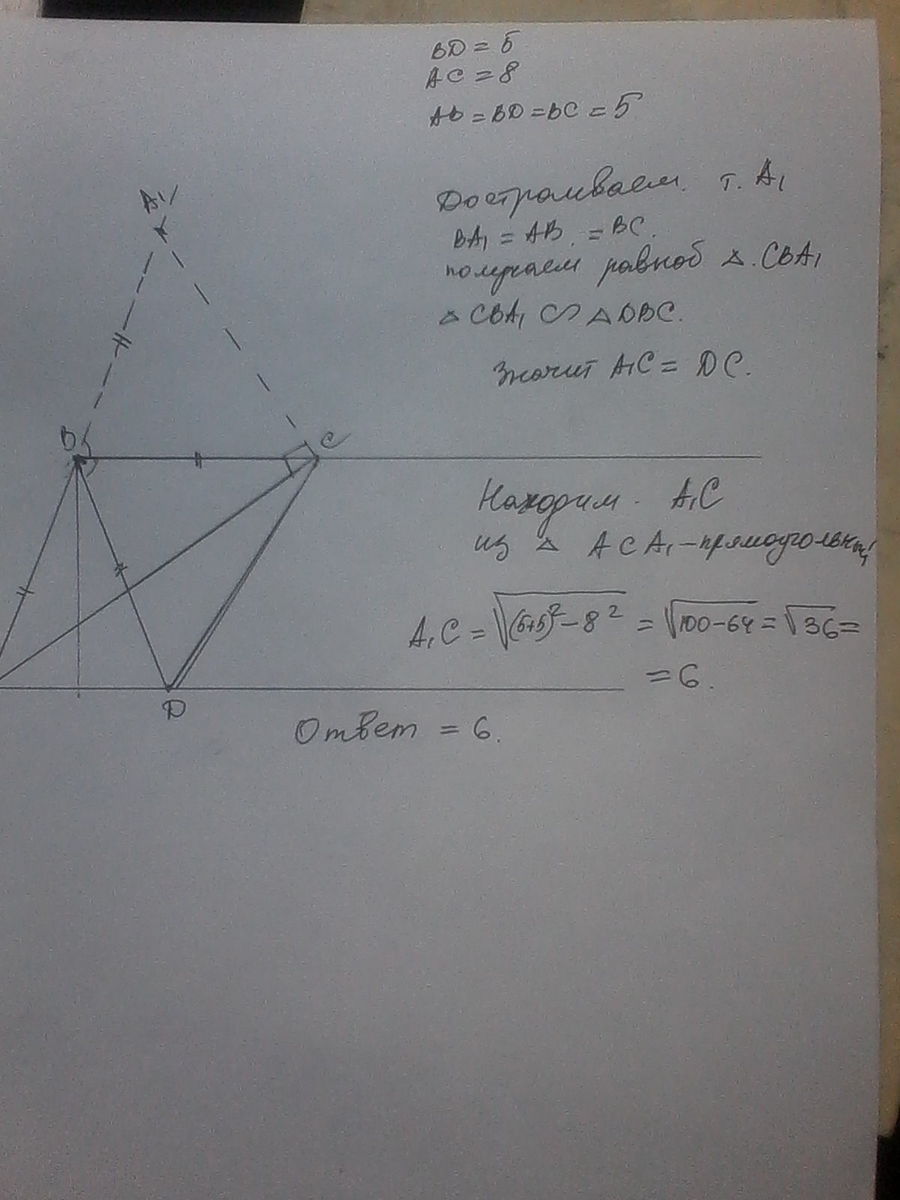 BD = 5
AC = 8
AB = BD = BC = 5
A1
Достраиваем. т. A1
BA1 = AB. = BC.
получаем равноб △. CBA1
△ CBA1 ∽ △ DBC.
Значит A1C = DC.
B
C
Находим. A1C
из △ ACA1 – прямоугольный
A1C = √(5+5)² – 8² = √100-64 = √36 =
= 6.
D
Ответ = 6.